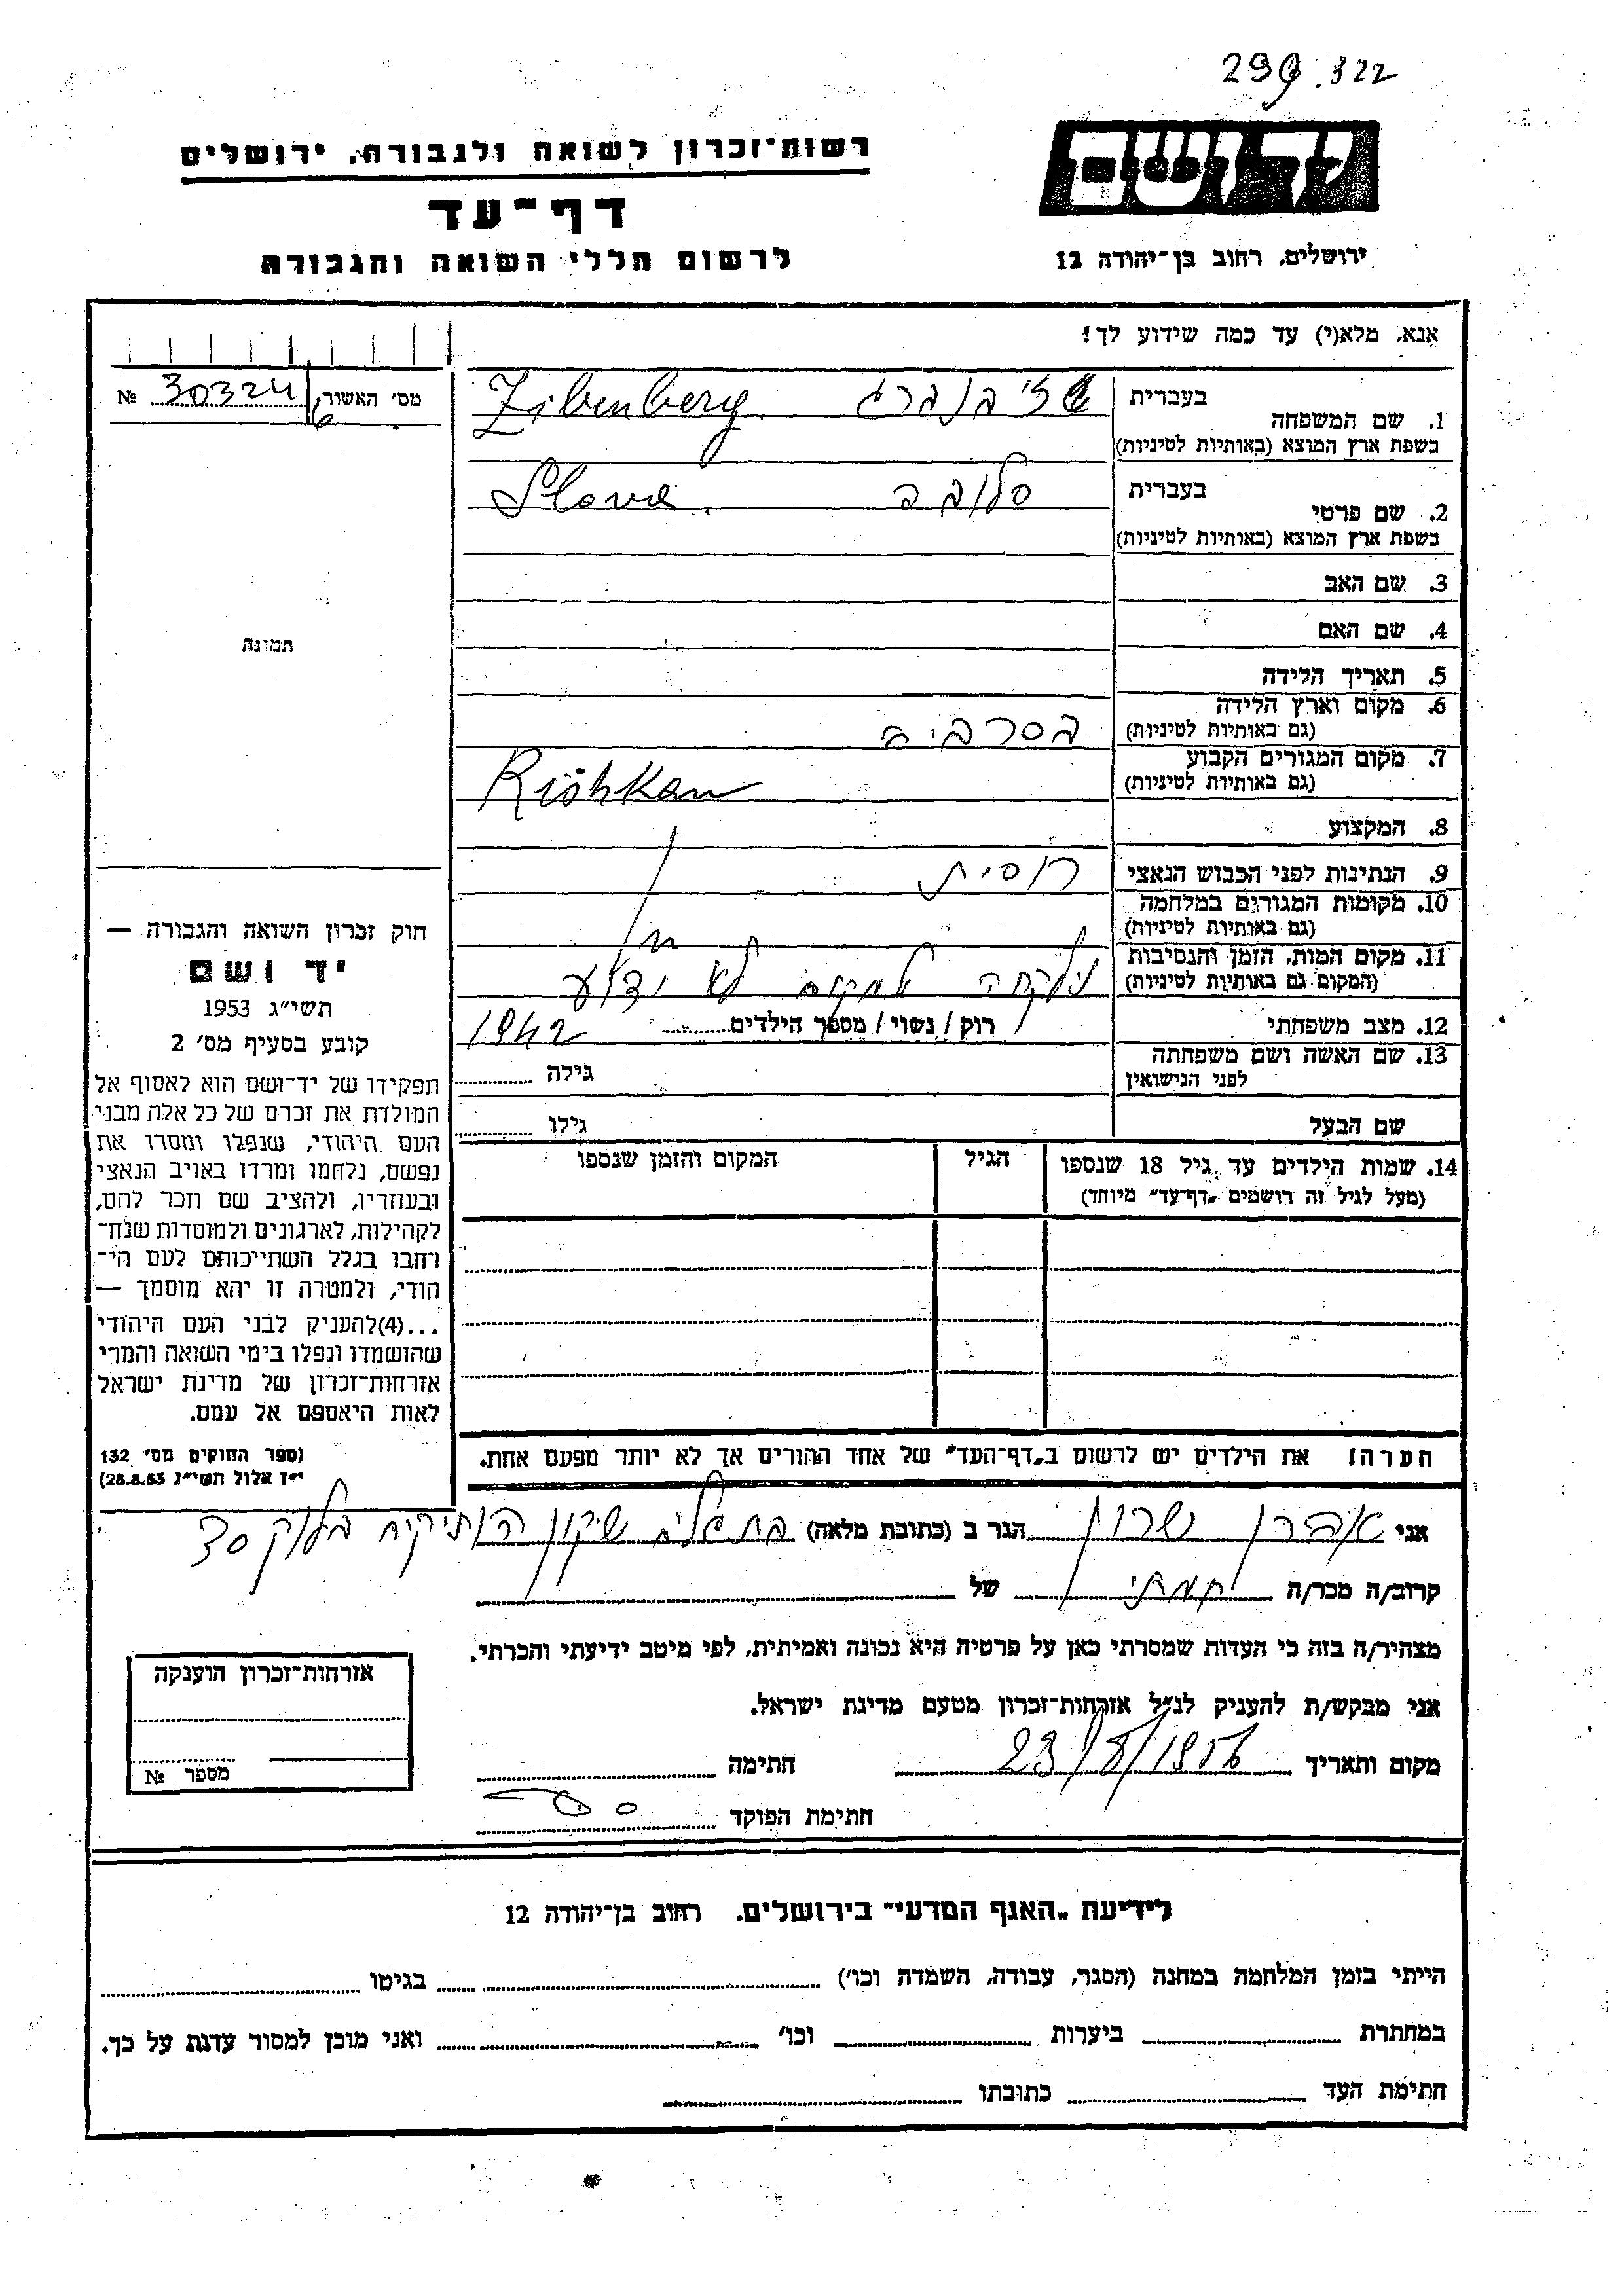 299.322
רשות־זכרון לשואה ולגבורה, ירושלים
יד ושם
דף־עד
לרשום חללי השואה והגבורה
ירושלים, רחוב בן־יהודה 12
אנא, מלא(י) עד כמה שידוע לך!
מס׳ האשור № 30324
1. שם המשפחה
בעברית
Zibenberg
בשפת ארץ המוצא (באותיות לטיניות)
2. שם פרטי
בעברית סלובה
Slova
בשפת ארץ המוצא (באותיות לטיניות)
3. שם האב
4. שם האם
תמונה
5. תאריך הלידה
6. מקום וארץ הלידה
(גם באותיות לטיניות) בסרביה
7. מקום המגורים הקבוע
(גם באותיות לטיניות) Rishkan
8. המקצוע
9. הנתינות לפני הכבוש הנאצי רוסית
10. מקומות המגורים במלחמה
(גם באותיות לטיניות)
11. מקום המות, הזמן והנסיבות
(המקום גם באותיות לטיניות) נלקחה למקום לא ידוע
12. מצב משפחתי רוק / נשוי / מספר הילדים 1942
13. שם האשה ושם משפחתה
לפני הנישואין גילה
שם הבעל גילו
14. שמות הילדים עד גיל 18 שנספו הגיל המקום והזמן שנספו
(מעל לגיל זה רושמים „דף־עד״ מיוחד)
חוק זכרון השואה והגבורה —
יד ושם
תשי״ג 1953
קובע בסעיף מס׳ 2
תפקידו של יד־ושם הוא לאסוף אל
המולדת את זכרם של כל אלה מבני
העם היהודי, שנפלו ומסרו את
נפשם, נלחמו ומרדו באויב הנאצי
ובעוזריו, ולהציב שם וזכר להם,
לקהילות, לארגונים ולמוסדות שנח־
רחבו בגלל השתייכותם לעם הי־
הודי, ולמטרה זו יהא מוסמך —
...(4)להעניק לבני העם היהודי
שהושמדו ונפלו בימי השואה והמרי
אזרחות־זכרון של מדינת ישראל
לאות היאספם אל עמם.
(ספר החוקים מס׳ 132
י״ז אלול תשי״ג 28.8.53)
הערה! את הילדים יש לרשום ב„דף־העד״ של אחד ההורים אך לא יותר מפעם אחת.
אני אהרן שרון הגר ב (כתובת מלאה) שיקון הותיקים בלוק 30
קרוב/ה מכר/ה של
מצהיר/ה בזה כי העדות שמסרתי כאן על פרטיה היא נכונה ואמיתית, לפי מיטב ידיעתי והכרתי.
אני מבקש/ת להעניק לנ״ל אזרחות־זכרון מטעם מדינת ישראל.
מקום ותאריך 23/8/1956 חתימה
חתימת הפוקד
אזרחות־זכרון הוענקה
מספר №
לידיעת „האגף המדעי״ בירושלים, רחוב בן־יהודה 12
הייתי בזמן המלחמה במחנה (הסגר, עבודה, השמדה וכו׳) בגיטו
במחתרת ביערות וכו׳ ואני מוכן למסור עדות על כך.
חתימת העד כתובתו